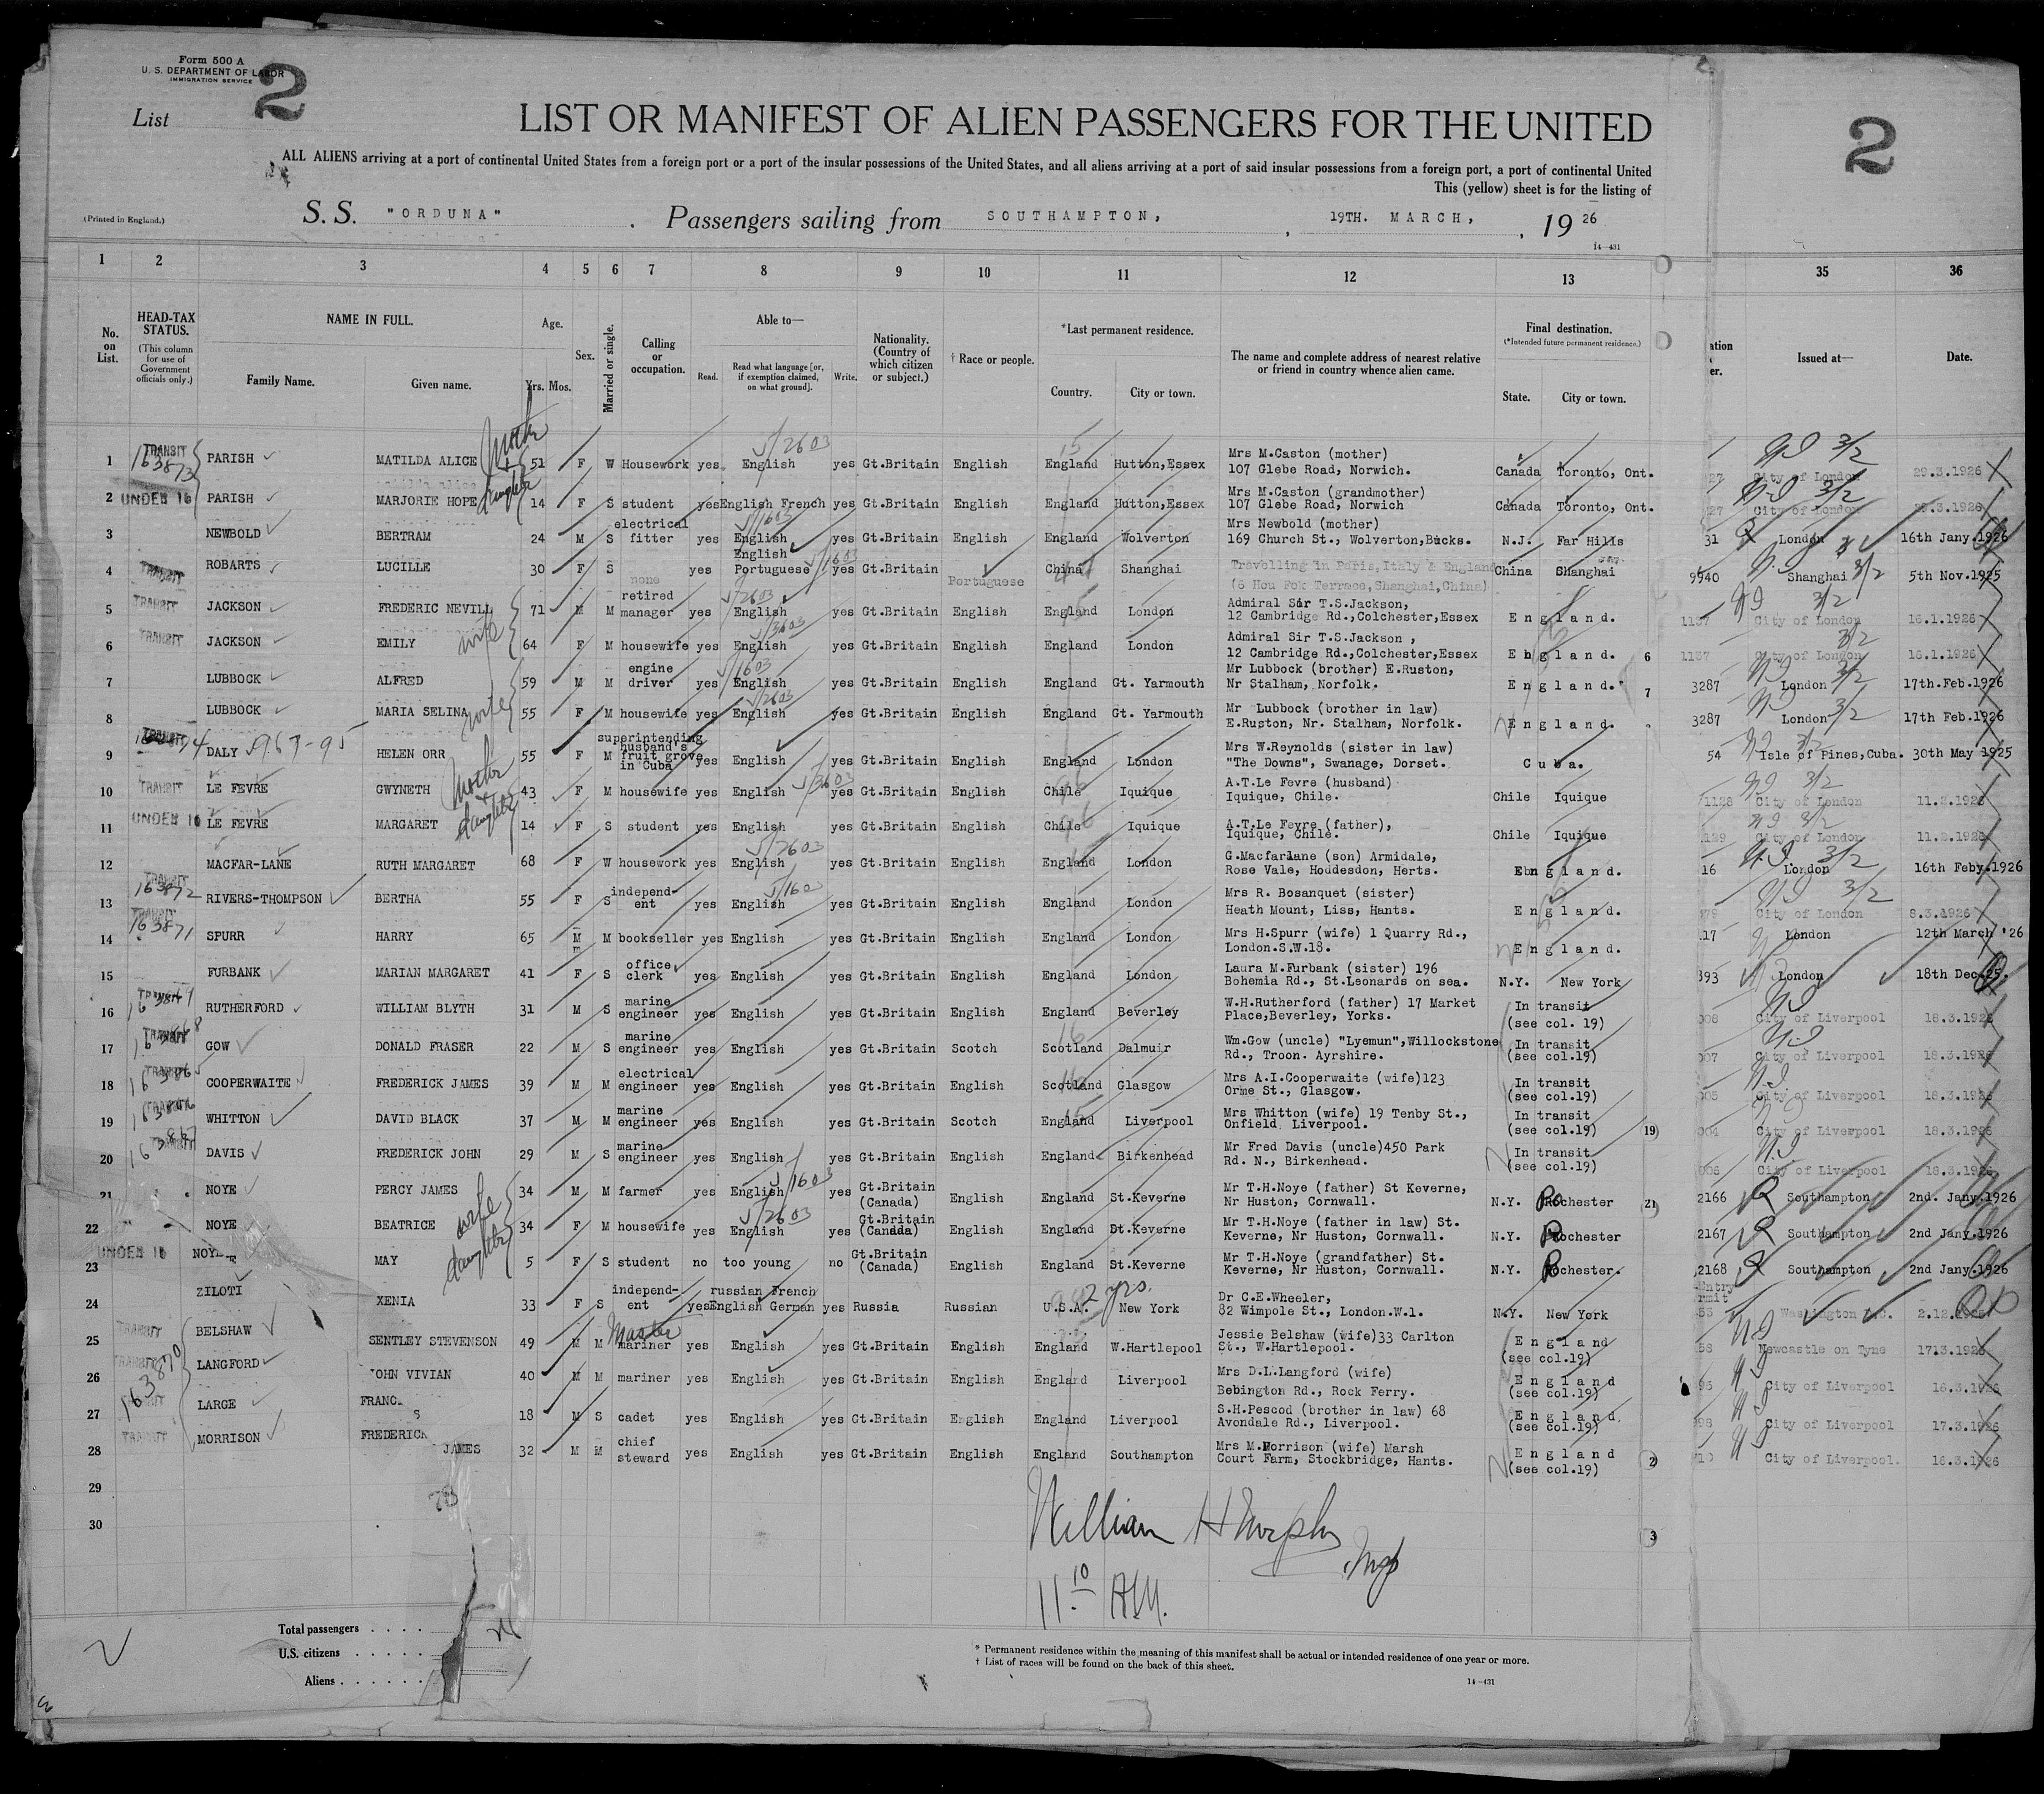 Form 500 A
U. S. DEPARTMENT OF LABOR
IMMIGRATION SERVICE
2
List
LIST OR MANIFEST OF ALIEN PASSENGERS FOR THE UNITED
2
ALL ALIENS arriving at a port of continental United States from a foreign port or a port of the insular possessions of the United States, and all aliens arriving at a port of said insular possessions from a foreign port, a port of continental United
This (yellow) sheet is for the listing of
(Printed in England.)
S. S. "ORDUNA" . Passengers sailing from SOUTHAMPTON, , 19TH. MARCH, , 19 26
14-431
1 2 3 4 5 6 7 8 9 10 11 12 13 35 36
No. on List. HEAD-TAX STATUS. (This column for use of Government officials only.) NAME IN FULL. Family Name. Given name. Age. Yrs. Mos. Sex. Married or single. Calling or occupation. Able to— Read. Read what language [or, if exemption claimed, on what ground]. Write. Nationality. (Country of which citizen or subject.) † Race or people. *Last permanent residence. Country. City or town. The name and complete address of nearest relative or friend in country whence alien came. Final destination. (*Intended future permanent residence.) State. City or town. Issued at— Date.
1 TRANSIT 163873 PARISH MATILDA ALICE Mother 51 F W Housework yes English yes Gt.Britain English England Hutton,Essex Mrs M.Caston (mother) 107 Glebe Road, Norwich. Canada Toronto, Ont. 27 City of London 29.3.1926
2 UNDER 16 PARISH MARJORIE HOPE daughter 14 F S student yes English French yes Gt.Britain English England Hutton,Essex Mrs M.Caston (grandmother) 107 Glebe Road, Norwich Canada Toronto, Ont. 27 City of London 29.3.1926
3 NEWBOLD BERTRAM 24 M S electrical fitter yes English yes Gt.Britain English England Wolverton Mrs Newbold (mother) 169 Church St., Wolverton,Bucks. N.J. Far Hills 31 London 16th Jany.1926
4 TRANSIT ROBARTS LUCILLE 30 F S none yes English Portuguese yes Gt.Britain Portuguese China Shanghai Travelling in Paris,Italy & England (6 Hou Fok Terrace,Shanghai,China) China Shanghai 9940 Shanghai 5th Nov.1925
5 TRANSIT JACKSON FREDERIC NEVILL 71 M M retired manager yes English yes Gt.Britain English England London Admiral Sir T.S.Jackson, 12 Cambridge Rd.,Colchester,Essex England. 1137 City of London 16.1.1926
6 TRANSIT JACKSON EMILY wife 64 F M housewife yes English yes Gt.Britain English England London Admiral Sir T.S.Jackson , 12 Cambridge Rd.,Colchester,Essex England. 6 1137 City of London 16.1.1926
7 LUBBOCK ALFRED 59 M M engine driver yes English yes Gt.Britain English England Gt. Yarmouth Mr Lubbock (brother) E.Ruston, Nr Stalham, Norfolk. England. 7 3287 London 17th.Feb.1926
8 LUBBOCK MARIA SELINA wife 55 F M housewife yes English yes Gt.Britain English England Gt. Yarmouth Mr Lubbock (brother in law) E.Ruston, Nr. Stalham, Norfolk. England. 3287 London 17th Feb.1926
9 TRANSIT DALY HELEN ORR 55 F M superintending husband's fruit grove in Cuba yes English yes Gt.Britain English England London Mrs W.Reynolds (sister in law) "The Downs", Swanage, Dorset. Cuba. 54 Isle of Pines,Cuba. 30th May 1925
10 TRANSIT LE FEVRE GWYNETH Mother 43 F M housewife yes English yes Gt.Britain English Chile Iquique A.T.Le Fevre (husband) Iquique, Chile. Chile Iquique 1128 City of London 11.2.1926
11 UNDER 16 LE FEVRE MARGARET daughter 14 F S student yes English yes Gt.Britain English Chile Iquique A.T.Le Fevre (father), Iquique, Chile. Chile Iquique 129 City of London 11.2.1926
12 MACFAR-LANE RUTH MARGARET 68 F W housework yes English yes Gt.Britain English England London G.Macfarlane (son) Armidale, Rose Vale, Hoddesdon, Herts. England. 16 London 16th Feby.1926
13 TRANSIT 163872 RIVERS-THOMPSON BERTHA 55 F S independ-ent yes English yes Gt.Britain English England London Mrs R. Bosanquet (sister) Heath Mount, Liss, Hants. England. 79 City of London 8.3.1926
14 TRANSIT 163871 SPURR HARRY 65 M M bookseller yes English yes Gt.Britain English England London Mrs H.Spurr (wife) 1 Quarry Rd., London.S.W.18. England. 17 London 12th March '26
15 FURBANK MARIAN MARGARET 41 F S office clerk yes English yes Gt.Britain English England London Laura M.Furbank (sister) 196 Bohemia Rd., St.Leonards on sea. N.Y. New York 393 London 18th Dec.25.
16 TRANSIT RUTHERFORD WILLIAM BLYTH 31 M S marine engineer yes English yes Gt.Britain English England Beverley W.H.Rutherford (father) 17 Market Place,Beverley, Yorks. In transit (see col. 19) 008 City of Liverpool 18.3.1926
17 TRANSIT GOW DONALD FRASER 22 M S marine engineer yes English yes Gt.Britain Scotch Scotland Dalmuir Wm.Gow (uncle) "Lyemun",Willockstone Rd., Troon. Ayrshire. In transit (see col.19) 007 City of Liverpool 18.3.1926
18 TRANSIT COOPERWAITE FREDERICK JAMES 39 M M electrical engineer yes English yes Gt.Britain English Scotland Glasgow Mrs A.I.Cooperwaite (wife)123 Orme St., Glasgow. In transit (see col.19) 005 City of Liverpool 18.3.1926
19 TRANSIT WHITTON DAVID BLACK 37 M M marine engineer yes English yes Gt.Britain Scotch England Liverpool Mrs Whitton (wife) 19 Tenby St., Onfield Liverpool. In transit (see col.19) 19 004 City of Liverpool 18.3.1926
20 TRANSIT DAVIS FREDERICK JOHN 29 M S marine engineer yes English yes Gt.Britain English England Birkenhead Mr Fred Davis (uncle)450 Park Rd. N., Birkenhead. In transit (see col.19) 006 City of Liverpool 18.3.1926
21 NOYE PERCY JAMES 34 M M farmer yes English yes Gt.Britain (Canada) English England St.Keverne Mr T.H.Noye (father) St Keverne, Nr Huston, Cornwall. N.Y. Rochester 21 2166 Southampton 2nd. Jany.1926
22 NOYE BEATRICE wife 34 F M housewife yes English yes Gt.Britain (Canada) English England St.Keverne Mr T.H.Noye (father in law) St. Keverne, Nr Huston, Cornwall. N.Y. Rochester 2167 Southampton 2nd Jany.1926
23 UNDER 16 NOYE MAY daughter 5 F S student no too young no Gt.Britain (Canada) English England St.Keverne Mr T.H.Noye (grandfather) St. Keverne, Nr Huston, Cornwall. N.Y. Rochester. 2168 Southampton 2nd Jany.1926
24 ZILOTI XENIA 33 F S independ-ent yes russian French English German yes Russia Russian U.S.A. 2 yrs. New York Dr C.E.Wheeler, 82 Wimpole St., London.W.1. N.Y. New York 53 Washington D.C. 2.12.1925
25 TRANSIT BELSHAW SENTLEY STEVENSON 49 M M Master mariner yes English yes Gt.Britain English England W.Hartlepool Jessie Belshaw (wife)33 Carlton St., W.Hartlepool. England (see col.19) 58 Newcastle on Tyne 1713.1926
26 TRANSIT 163870 LANGFORD JOHN VIVIAN 40 M M mariner yes English yes Gt.Britain English England Liverpool Mrs D.L.Langford (wife) Bebington Rd., Rock Ferry. England (see col.19) 95 City of Liverpool 16.3.1926
27 TRANSIT LARGE FRANC S 18 M S cadet yes English yes Gt.Britain English England Liverpool S.H.Pescod (brother in law) 68 Avondale Rd., Liverpool. England. (see col.19) 98 City of Liverpool 17.3.1926
28 TRANSIT MORRISON FREDERICK JAMES 32 M M chief steward yes English yes Gt.Britain English England Southampton Mrs M.Morrison (wife) Marsh Court Farm, Stockbridge, Hants. England (see col.19) 2 10 City of Liverpool. 16.3.1926
29
30
78
William H Murphy
Insp
3
11 10 A.M.
Total passengers . . . .
U.S. citizens . . . . .
Aliens . . . . . .
* Permanent residence within the meaning of this manifest shall be actual or intended residence of one year or more.
† List of races will be found on the back of this sheet.
14-431